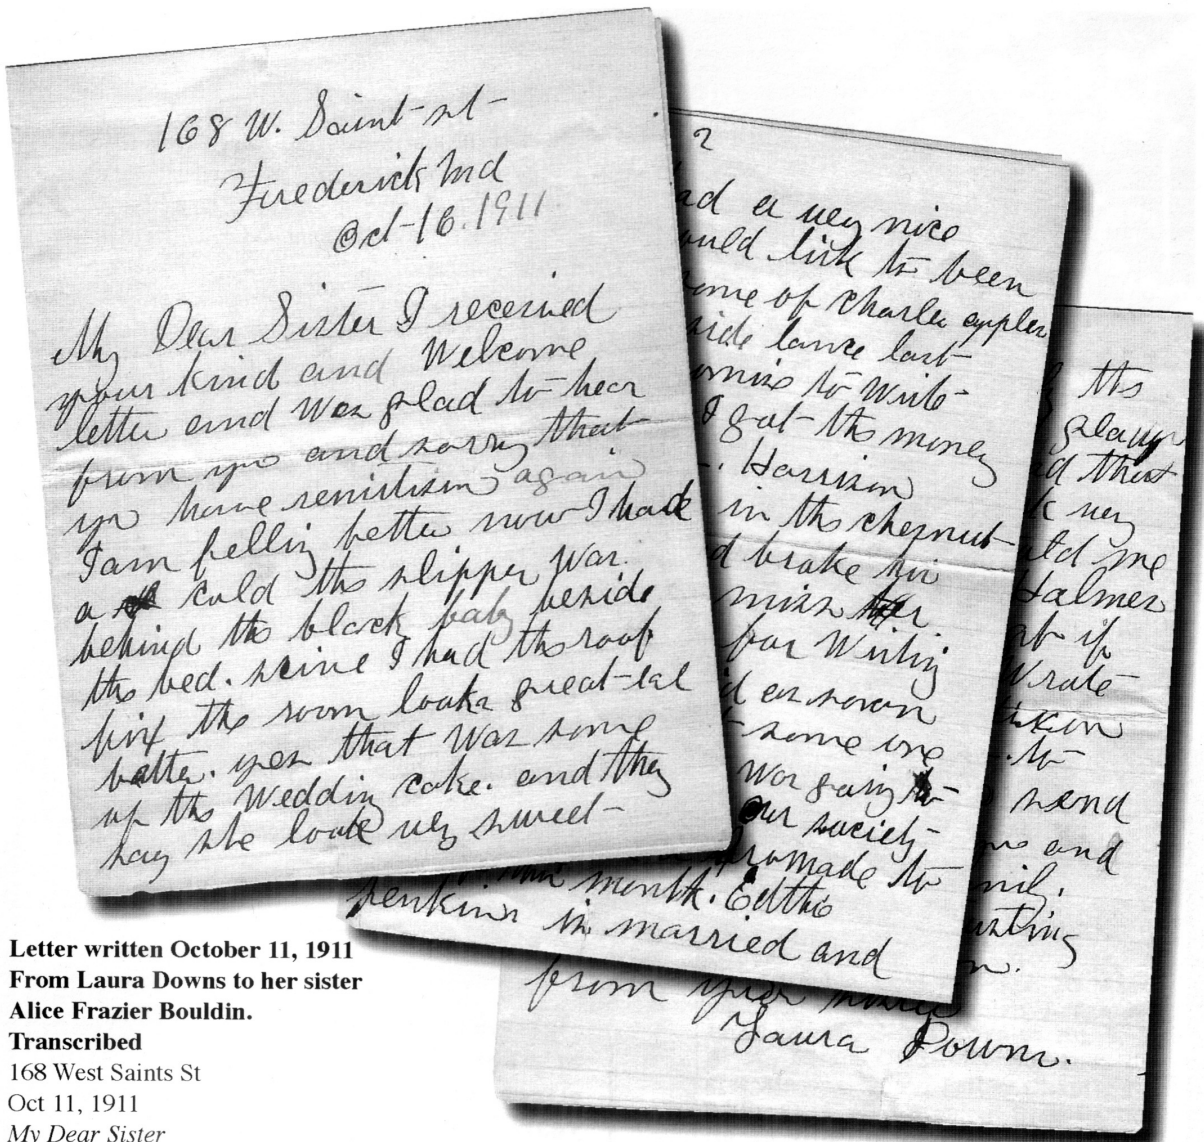 168 W. Saint st
Frederick Md
Oct-16.1911
My Dear Sister I received
your kind and Welcome
letter and Was glad to hear
from yo and sorry that
yo have remitism again
I am felling better now I had
a cold ths slipper war
behind ths black bag beside
ths bed. scine I had ths roof
fix ths room looks great-eal
batter. yes that Was some
of ths Wedding cake. and they
say she look very sweet
2
ad a very nice
ould lick to been
ome of Charles apples
side lance last
omiss to Write
I got ths money
. Harrison
in ths chesnut
d brake his
miss her
for Writing
d as soon
some one
Was going to
our society
promade to
month. Edthe
Jenkins is married and
ths
glaug
d that
k very
told me
Halmes
if
Wrote
to
send
and
from your sister
Laura Downs.
Letter written October 11, 1911
From Laura Downs to her sister
Alice Frazier Bouldin.
Transcribed
168 West Saints St
Oct 11, 1911
My Dear Sister